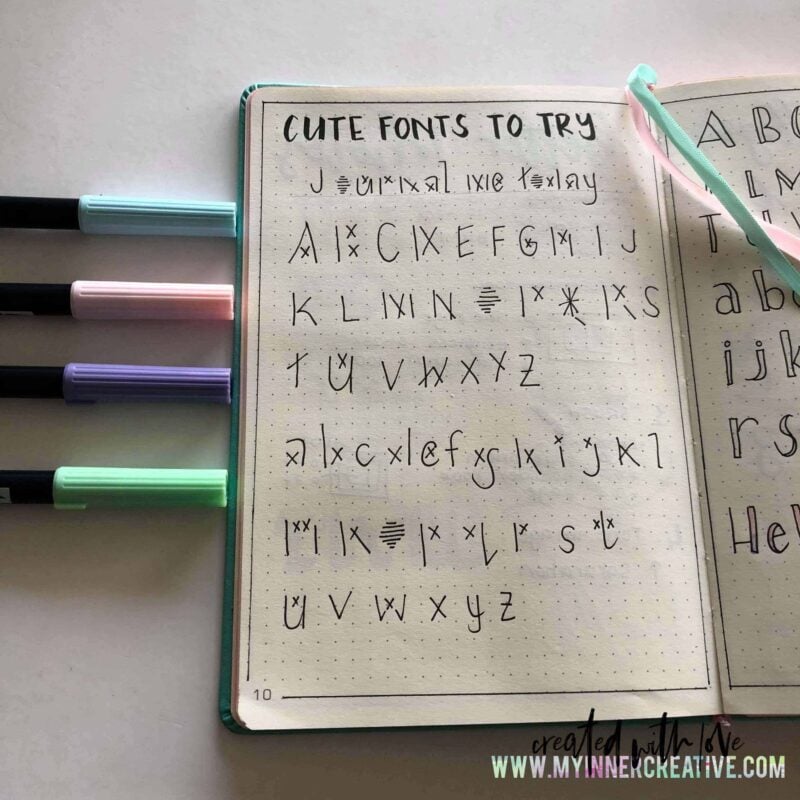 CUTE FONTS TO TRY
Journal me today
A B C D E F G H I J
K L M N O P Q R S
T U V W X Y Z
a b c d e f g h i j k l
m n o p q r s t
u v w x y z
10
A B C
L M
T U
a b
i j k
r s
Hel
created with love
WWW.MYINNERCREATIVE.COM